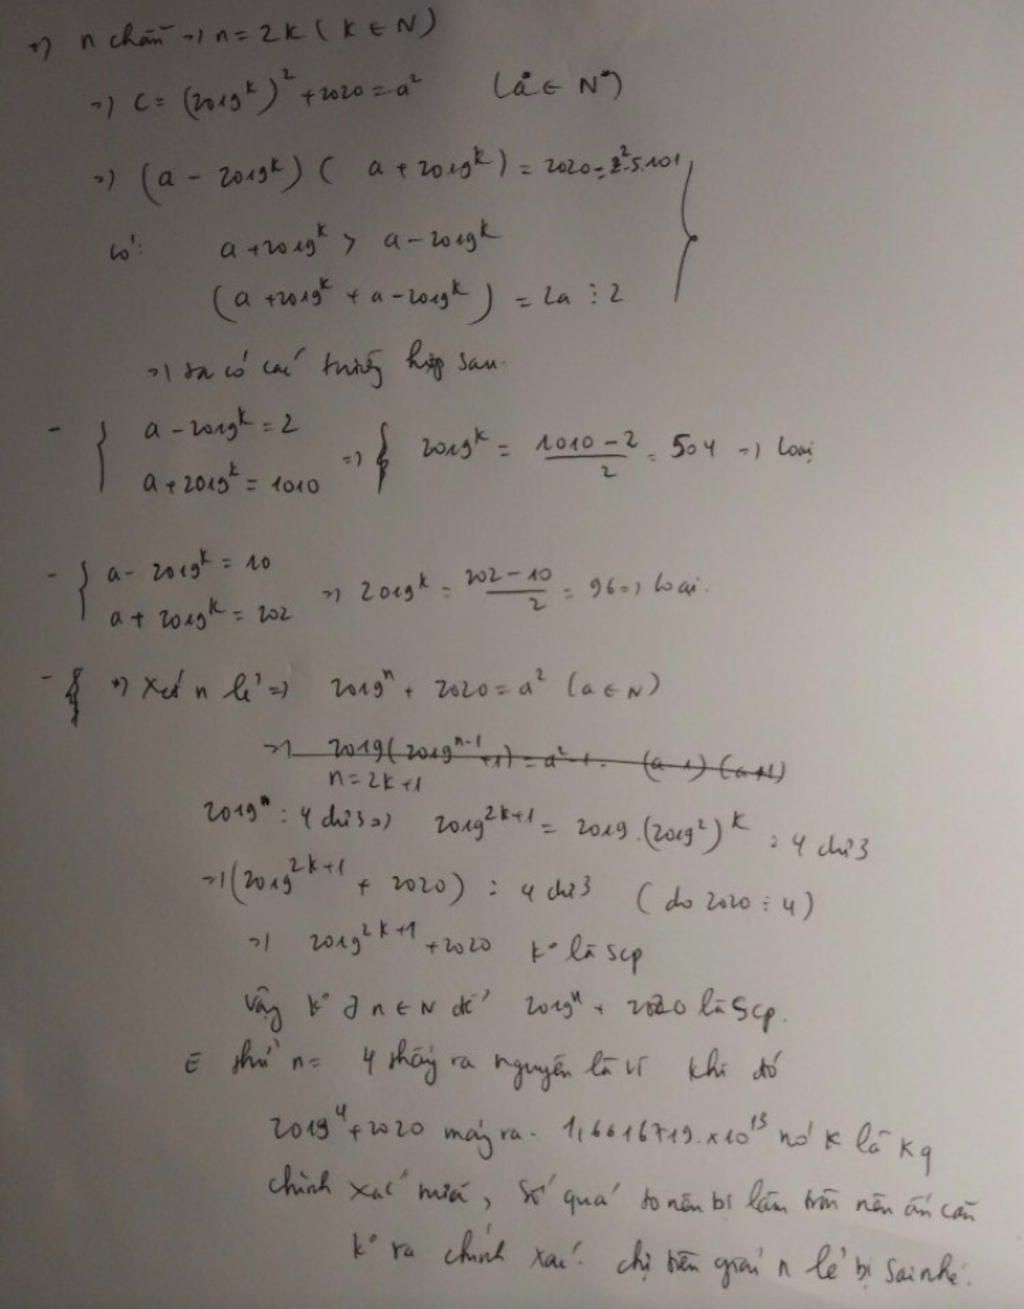 +) n chẵn => n = 2k ( k ∈ N )
=> C = (2019^k)^2 + 2020 = a^2 (a ∈ N*)
=> (a - 2019^k) ( a + 2019^k) = 2020 = 2^2.5.101
có: a + 2019^k > a - 2019^k
(a + 2019^k + a - 2019^k) = 2a ⋮ 2
=> ta có các trường hợp sau.
- { a - 2019^k = 2
a + 2019^k = 1010 => { 2019^k = (1010 - 2)/2 = 504 => loại
- { a - 2019^k = 10
a + 2019^k = 202 => 2019^k = (202 - 10)/2 = 96 => loại.
- +) Xét n lẻ => 2019^n + 2020 = a^2 (a ∈ N)
=> 2019(2019^(n-1) + 1) = a^2 - 1 = (a-1)(a+1)
n = 2k+1
2019^n : 4 dư 3 => 2019^(2k+1) = 2019.(2019^2)^k : 4 dư 3
=> (2019^(2k+1) + 2020) : 4 dư 3 ( do 2020 ⋮ 4)
=> 2019^(2k+1) + 2020 k° là scp
Vậy k° ∃ n ∈ N để 2019^n + 2020 là scp.
E thử n = 4 thấy ra nguyên là vì khi đó
2019^4 + 2020 máy ra. 1,6616719.x10^13 nó k là kq
chính xác nữa, số quá to nên bị làm tròn nên ấn căn
k° ra chính xác. chị trên giải n lẻ bị sai nhé.